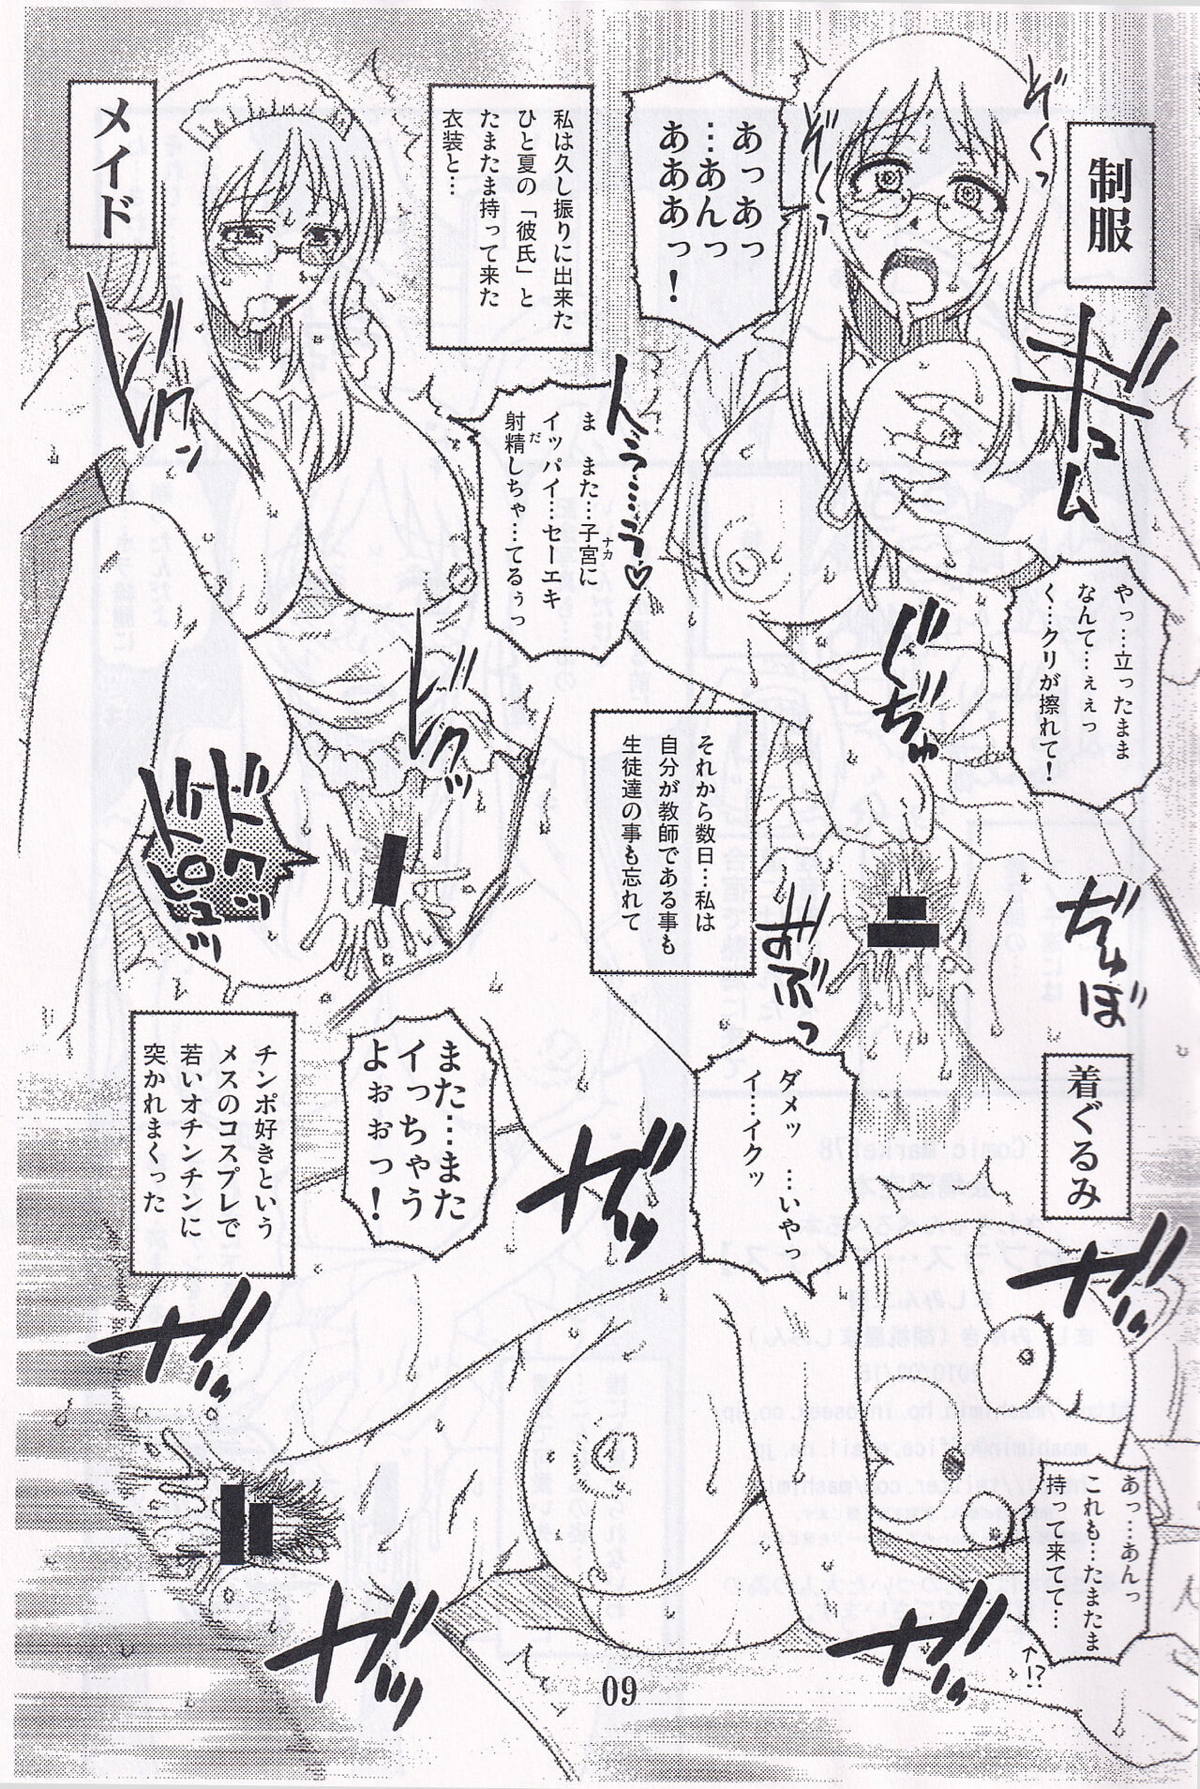 制服
ぞくっ
ぞくっ
あっあっ
…あんっ
あああっ！
ギュム
やっ…立ったまま
なんて…ぇぇっ
く…クリが擦れて！
ぢゅ
ぢゅぼ
おぶっ
メイド
私は久し振りに出来た
ひと夏の「彼氏」と
たまたま持って来た
衣装と…
んぅ…っ♡
ま また…子宮に
ナカ
イッパイ…セーエキ
射精しちゃ…てるぅっ
だ
ドクン
ドクッ
ドクッ
ドピュッ
それから数日…私は
自分が教師である事も
生徒達の事も忘れて
着ぐるみ
ダメッ …いやっ
イ…イクッ
また…また
イっちゃう
よぉぉっ！
あっ…あんっ
これも…たまたま
持って来てて…
↑!?
チンポ好きという
メスのコスプレで
若いオチンチンに
突かれまくった
09